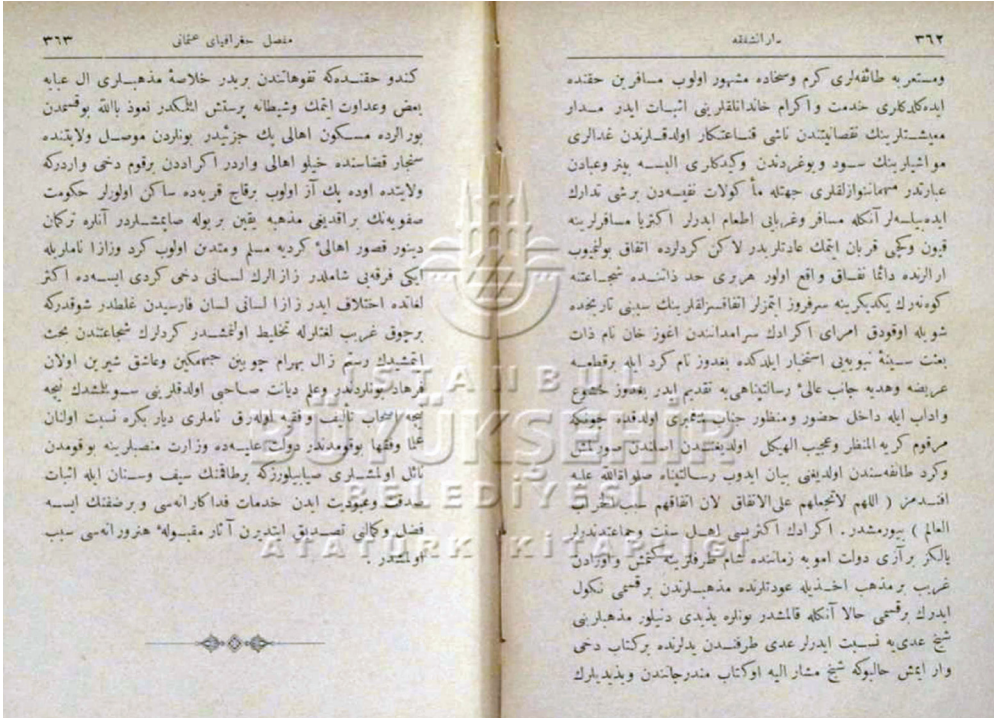 ٣٦٢
دار الشفقه
ومستعربه طائفه‌لری کرم وسخاده مشهور اولوب مسافرین حقنده
ایده‌کلدکلری خدمت واکرام خاندانلقلرینی اثبات ایدر مدار
معیشتلرینك نقصانیتندن ناشی قناعتکار اولدقلرندن غدالری
مواشیلرینك سود ویوغردندن وکیدکلری البسه
عبارتدر مهماننوازلقلری جهتله مأ کولات نفیسه‌دن برشی تدارك
ایده‌بیلسه‌لر آنکله مسافر وغربایی اطعام ایدرلر اکثریا مسافرلرینه
قیون وکچی قربان ایتمك عادتلریدر لاکن کردلرده اتفاق بولنمیوب
ارالرنده دائما نفاق واقع اولور هربری حد ذاتنده شجاعتنه
کوه‌نه‌رك یکدیکرینه سرفرو ایتمزلر اتفاقسزلقلرینك سببنی تاریخده
شویله اوقودق امرای اکرادك سرامدانندن اغوز خان نام ذات
بعثت سنیهٔ نبویه‌یی استخبار ایلدکده بغدوز نام کرد ایله برقطعه
عریضه وهدیه جانب عالئ رسالتپناهی‌یه تقدیم ایدر بغدوز خضوع
واداب ایله داخل حضور ومنظور جناب پیغمبری اولدقده چونکه
مرقوم کریه المنظر وعجیب الهیکل اولدیغندن اصلندن صورلمش
وکرد طائفه‌سندن اولدیغنی بیان ایدوب رسالتپناه صلواة‌الله علیه
افندمز ( اللهم لاتجعلهم علی‌الاتفاق لان اتفاقهم سبب لخراب
العالم ) بیورمشدر . اکرادك اکثریسی اهل سنت وجماعتدندرلر
یالکز برآزی دولت امویه زماننده شام طرفلرینه کتمش واورادن
غریب برمذهب اخذیله عودتلرنده مذهبلرندن برقسمی نکول
ایدرك برقسمی حالا آنکله قالمشدر بونلره یزیدی دنیلور مذهبلرینی
شیخ عدی‌یه نسبت ایدرلر عدی طرفندن یدلرنده برکتاب دخی
وار ایمش حالبوکه شیخ مشار الیه اوکتاب مندرجاتندن ویزیدیلرك
مفصل جغرافیای عثمانی
٣٦٣
کندو حقنده‌که تفوهاتندن بریدر خلاصهٔ مذهبلری ال عبایه
بغض وعداوت ایتمك وشیطانه پرستش ایتلکدر نعوذ بالله بوقسمدن
بورالرده مسکون اهالی پك جزئیدر بونلردن موصل ولایتنده
سنجار قضاسنده خیلو اهالی واردر اکراددن برقوم دخی واردرکه
ولایتده اوده پك آز اولوب برقاچ قریه‌ده ساکن اولورلر حکومت
صفویه‌نك براقدیغی مذهبه یقین بریوله صاپمشلردر آنلره ترکمان
دینور قصور اهالئ کردیه مسلم ومتدین اولوب کرد وزازا نامیله
ایکی فرقه‌یی شاملدر زازالرك لسانی دخی کردی ایسه‌ده اکثر
لغاتده اختلاف ایدر زازا لسانی لسان فارسیدن غلطدر شوقدرکه
برچوق غریب لغتلرله تخلیط اولنمشدر کردلرك شجاعتندن بحث
اتمشیدك رستم زال بهرام چوبین جهمکین وعاشق شیرین اولان
فرهاد بونلردندر وعلم دیانت صاحبی اولدقلرینی سویلشدك نیجه
نیجه اصحاب تألیف وفقیه اوله‌رق ناملری دیار بکره نسبت اولنان
علما وفقها بوقومدندر دولت علیه‌ده وزارت منصبلرینه بوقومدن
نائل اولمشلری صیابیلورزکه برطاقمنك سیف وسنان ایله اثبات
صدقت وعبودیت ایدن خدمات فداکارانه‌سی وبرصنفنك ایسه
فضل وکمالی تصدیق ایتدیرن آثار مقبولهٔ هنرورانه‌سی سبب
اولمشدر .
İSTANBUL
BÜYÜKŞEHİR
BELEDİYESİ
ATATÜRK KİTAPLIĞI